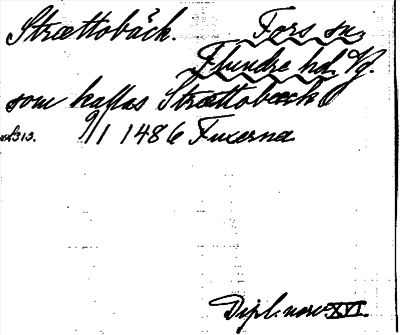 Strættobäck. Fors sn,
Flundre hd, Vg.
som kallas Strættobæck
9/1 1486 Fuxerna
Dipl. norv. XVI.